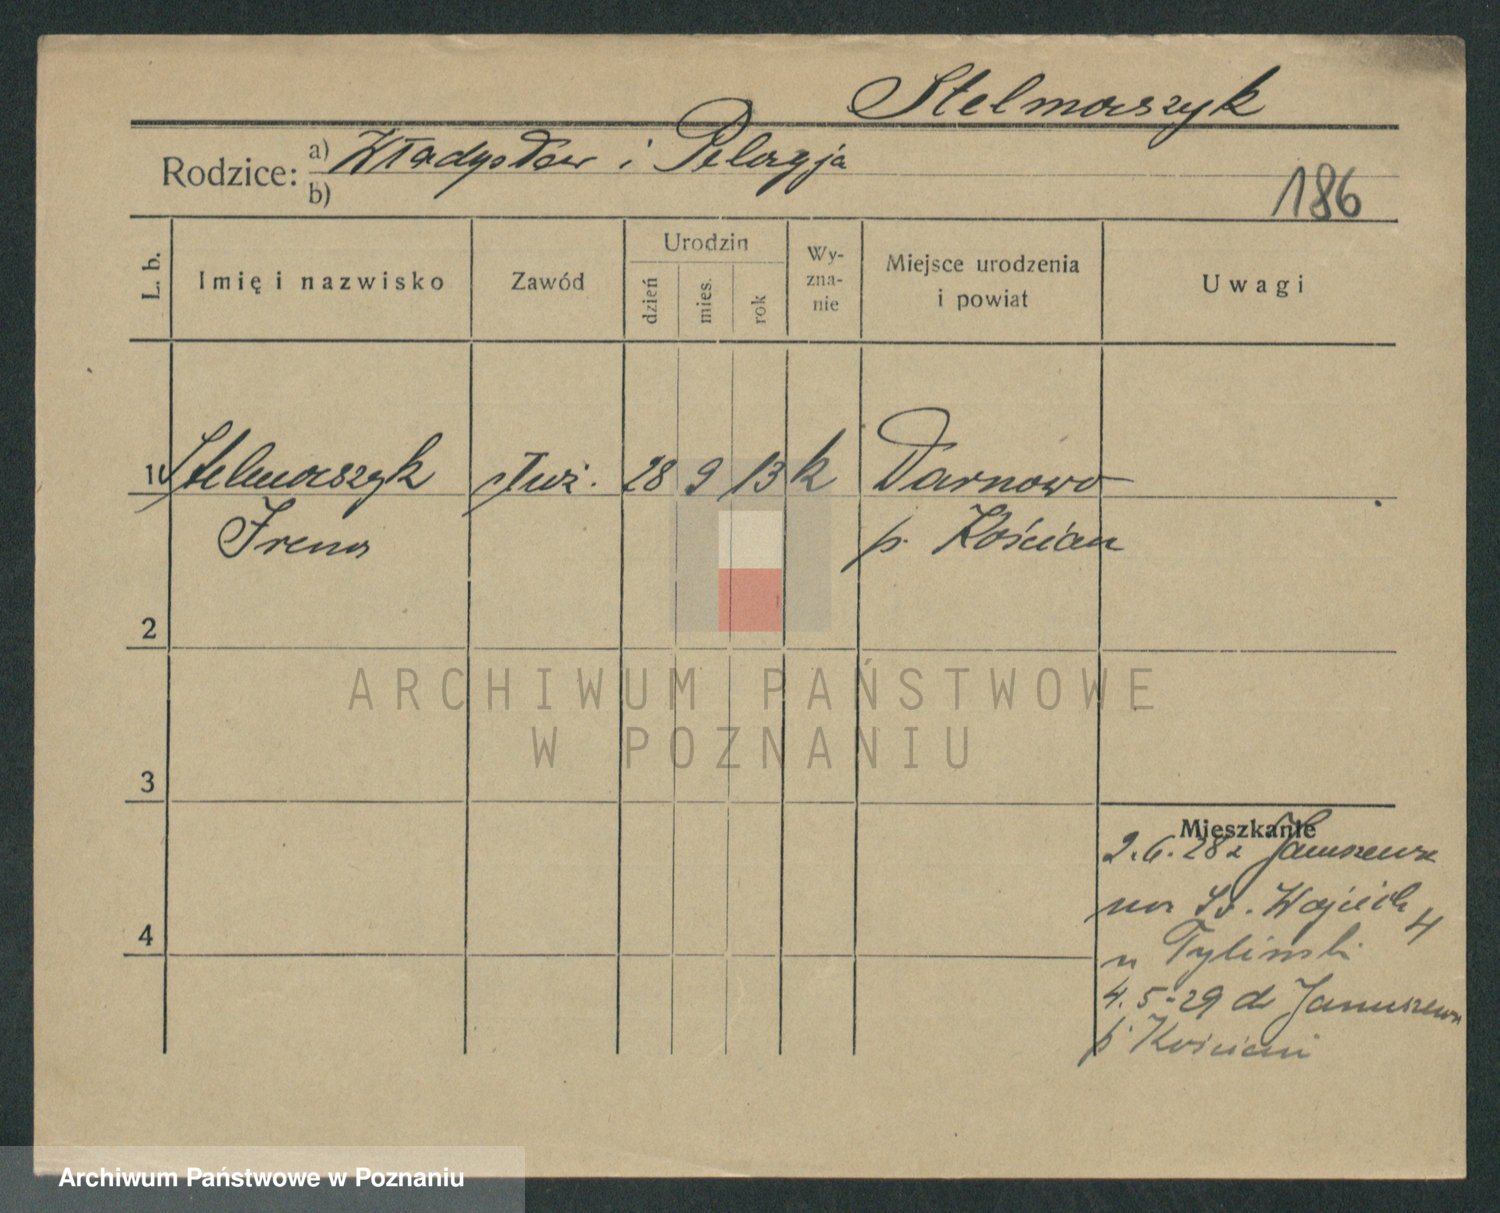 Stelmaszyk
Rodzice: a) Władysław i Pelagja
b)
186
L. b.
Imię i nazwisko
Zawód
Urodzin
dzień
mies.
rok
Wy-
zna-
nie
Miejsce urodzenia
i powiat
Uwagi
1 Stelmaszyk 28 9 13 k Darnowo
Irena p. Kościan
2
ARCHIWUM PAŃSTWOWE
W POZNANIU
3
Mieszkanie
2.6.28 z Januszewa
na Św. Wojciech 4
u Tylinski
4.5-29 do Januszewa
p. Kościan
4
Archiwum Państwowe w Poznaniu